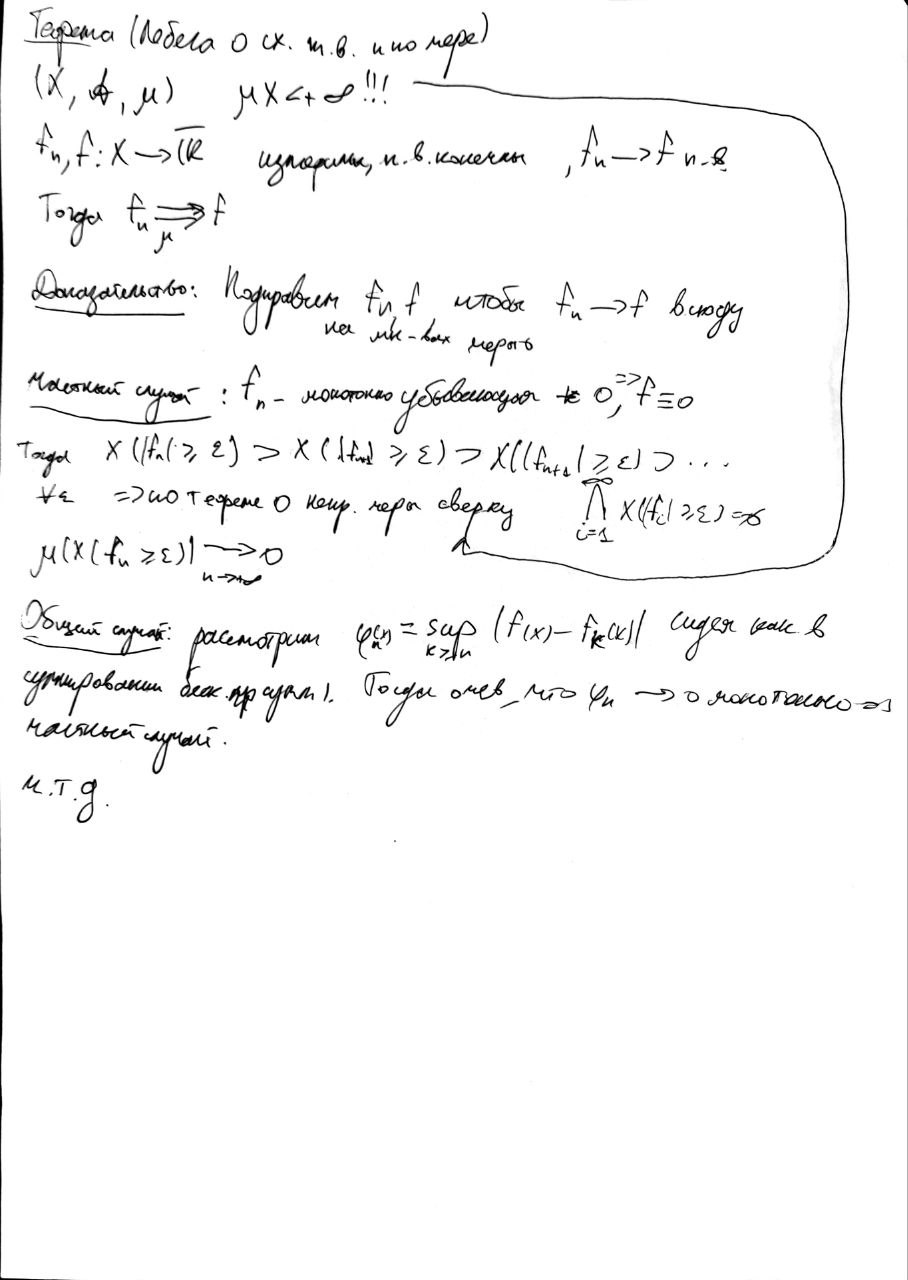 Теорема (Лебега о сх. п.в. и по мере)
(X, A, μ) μX < +∞!!!
fn, f: X → ℝ̅ измеримы, п.в. конечны, fn → f п.в
Тогда fn ⇒μ f
Доказательство: Подправим fn, f, чтобы fn → f всюду
на мн-вах меры 0
частный случай: fn - монотонно убывающая к 0, => f ≡ 0
Тогда X(|fn| ≥ ε) ⊃ X(|fn+1| ≥ ε) ⊃ X(|fn+1| ≥ ε) ⊃ ...
∀ε => по теореме о непр. меры сверху ⋂_{i=1}^{∞} X(|fi| ≥ ε) = ∅
μ(X(fn ≥ ε)) →_{n→+∞} 0
Общий случай: рассмотрим φn(x) = sup_{k≥n} |f(x) - fk(x)| (идея как в
суммировании беск. ). Тогда очев, что φn → 0 монотонно =>
частный случай.
ч.т.д.